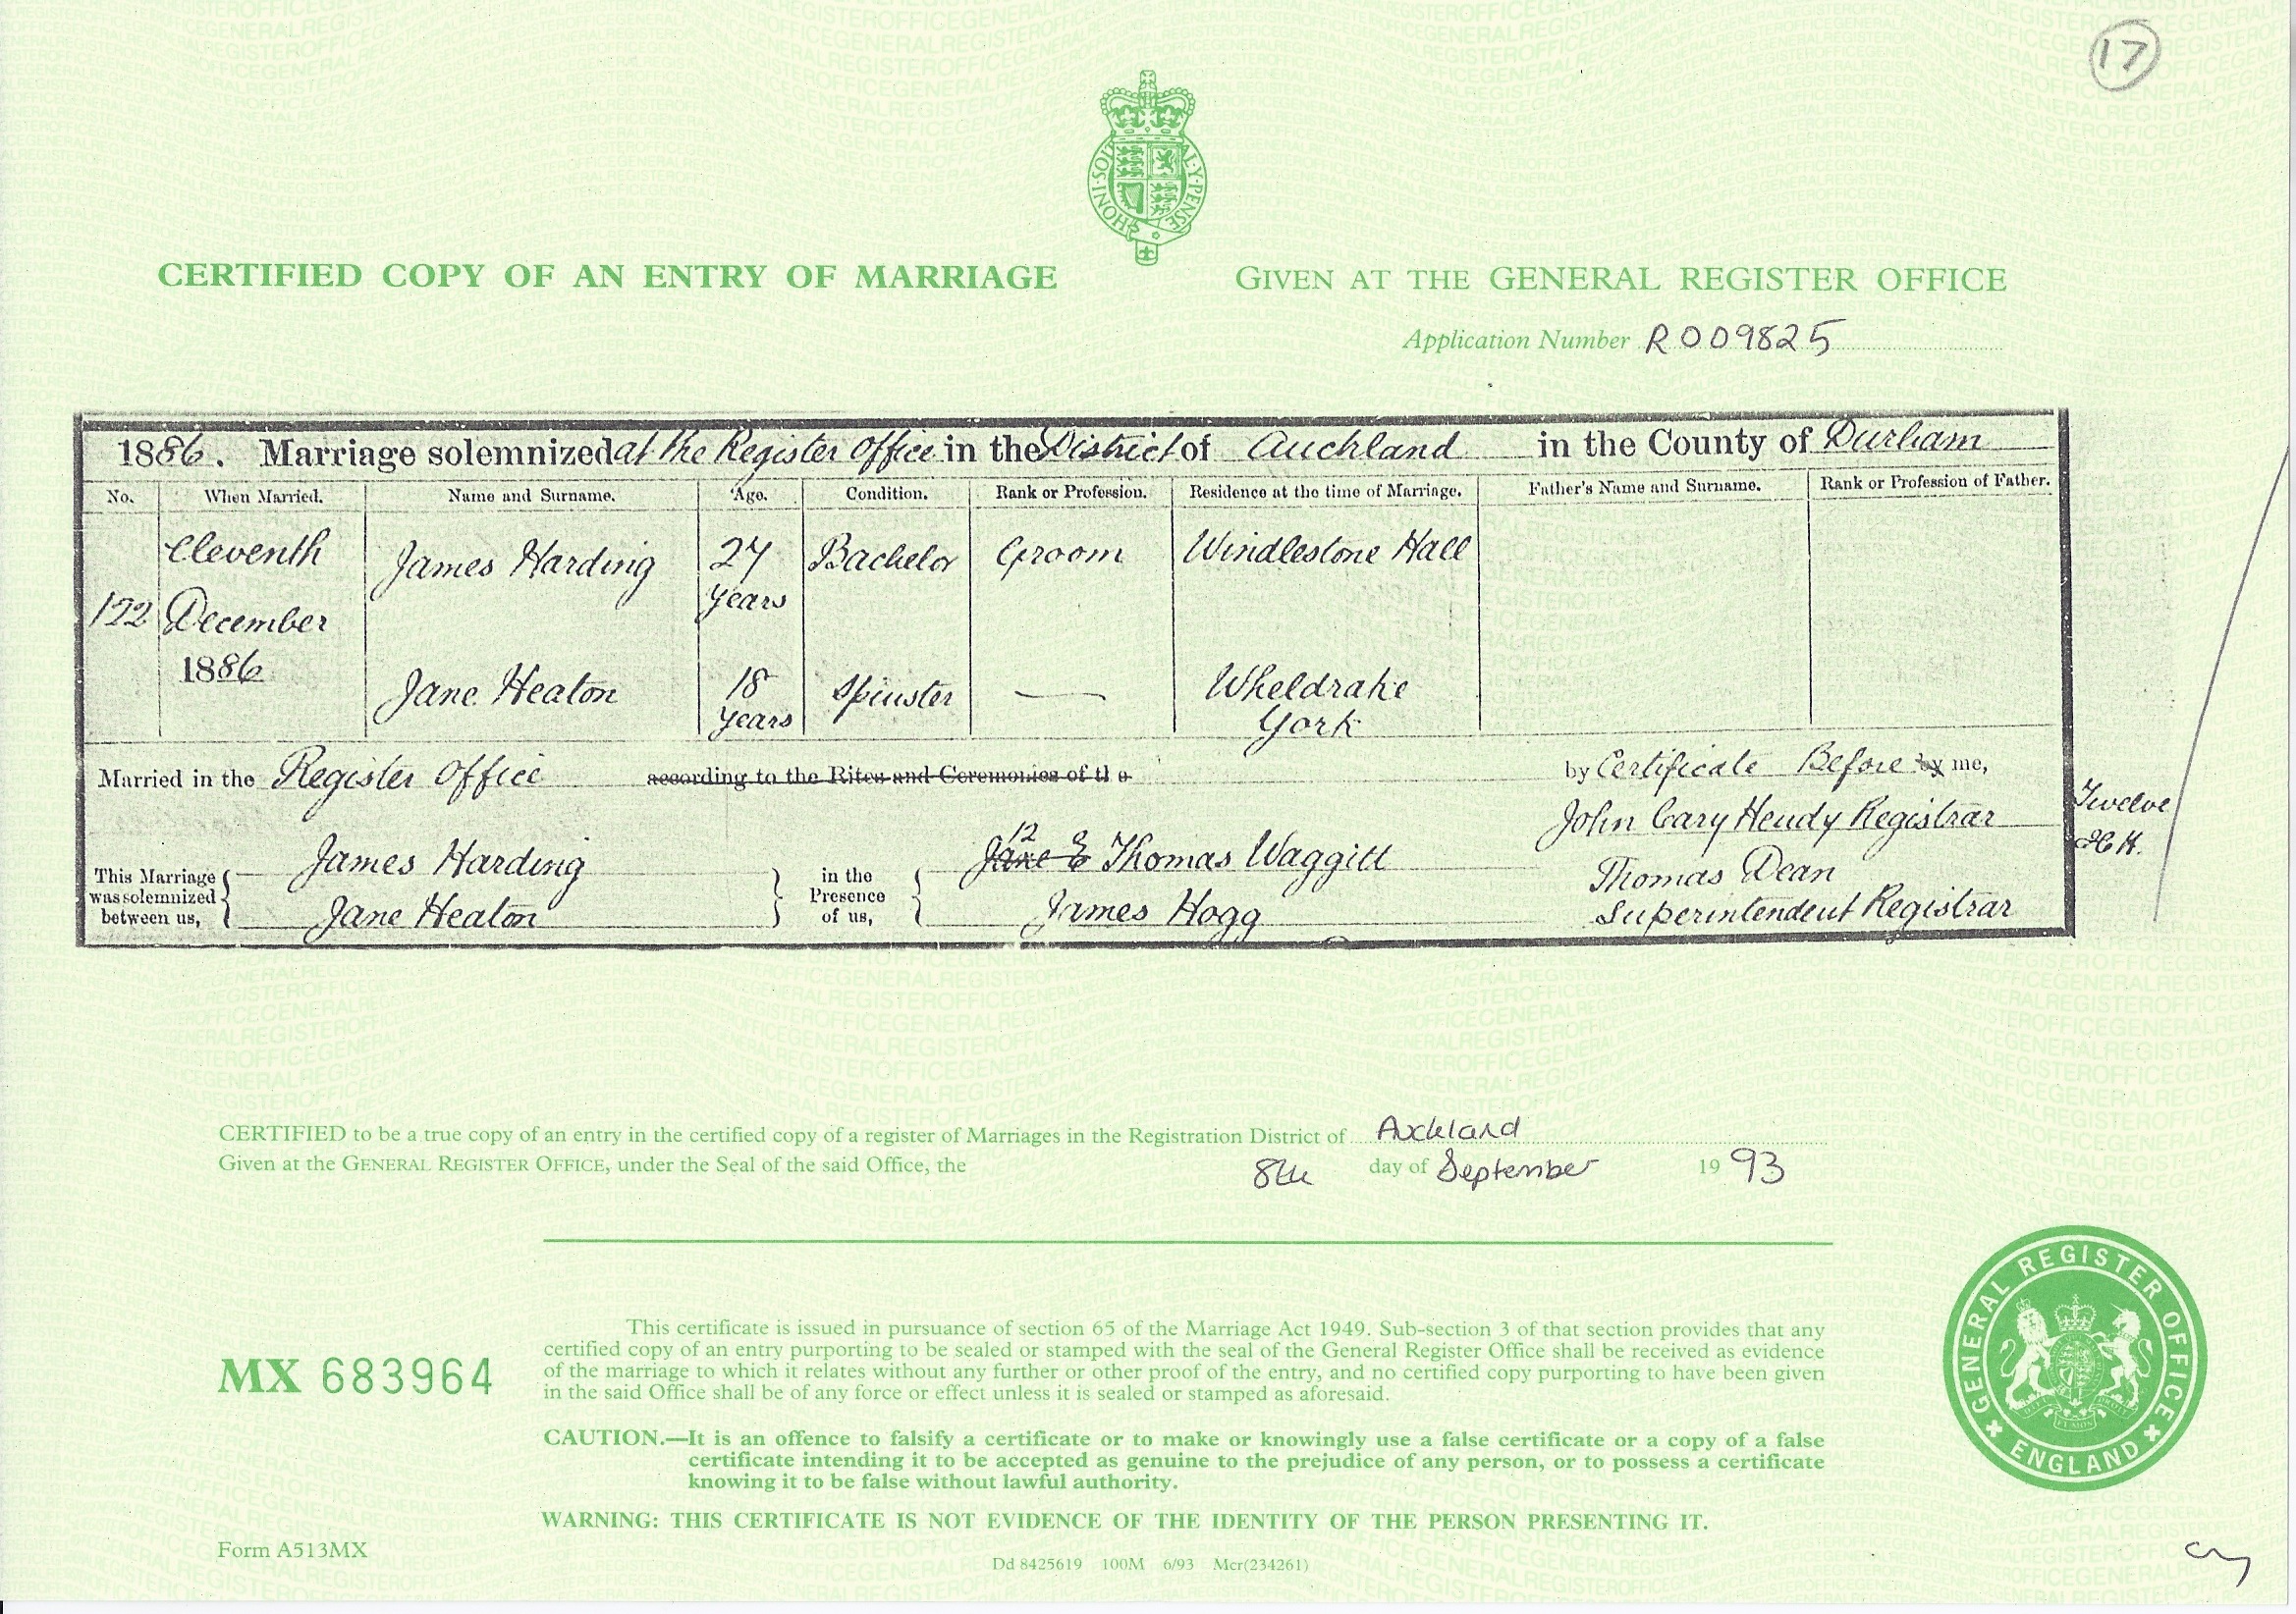 17
HONI·SOIT AL·Y·PENSE
CERTIFIED COPY OF AN ENTRY OF MARRIAGE GIVEN AT THE GENERAL REGISTER OFFICE
Application Number R009825
1886. Marriage solemnized at the Register Office in the District of Auckland in the County of Durham
No. When Married. Name and Surname. Age. Condition. Rank or Profession. Residence at the time of Marriage. Father's Name and Surname. Rank or Profession of Father.
Eleventh James Harding 27 Bachelor Groom Windlestone Hall
years
122 December
1886 Jane Heaton 18 Spinster — Wheldrake
years York
Married in the Register Office according to the Rites and Ceremonies of the by Certificate Before by me,
Twelve
John Cary Hendy Registrar
12
James Harding Jane E Thomas Waggitt
Thomas Dean
This Marriage was solemnized between us, in the Presence of us,
Jane Heaton James Hogg Superintendent Registrar
CERTIFIED to be a true copy of an entry in the certified copy of a register of Marriages in the Registration District of Auckland
Given at the GENERAL REGISTER OFFICE, under the Seal of the said Office, the 8th day of September 1993
This certificate is issued in pursuance of section 65 of the Marriage Act 1949. Sub-section 3 of that section provides that any
certified copy of an entry purporting to be sealed or stamped with the seal of the General Register Office shall be received as evidence
of the marriage to which it relates without any further or other proof of the entry, and no certified copy purporting to have been given
in the said Office shall be of any force or effect unless it is sealed or stamped as aforesaid.
MX 683964
CAUTION.—It is an offence to falsify a certificate or to make or knowingly use a false certificate or a copy of a false
certificate intending it to be accepted as genuine to the prejudice of any person, or to possess a certificate
knowing it to be false without lawful authority.
WARNING: THIS CERTIFICATE IS NOT EVIDENCE OF THE IDENTITY OF THE PERSON PRESENTING IT.
GENERAL REGISTER OFFICE
ENGLAND
Form A513MX
Dd 8425619 100M 6/93 Mcr(234261)